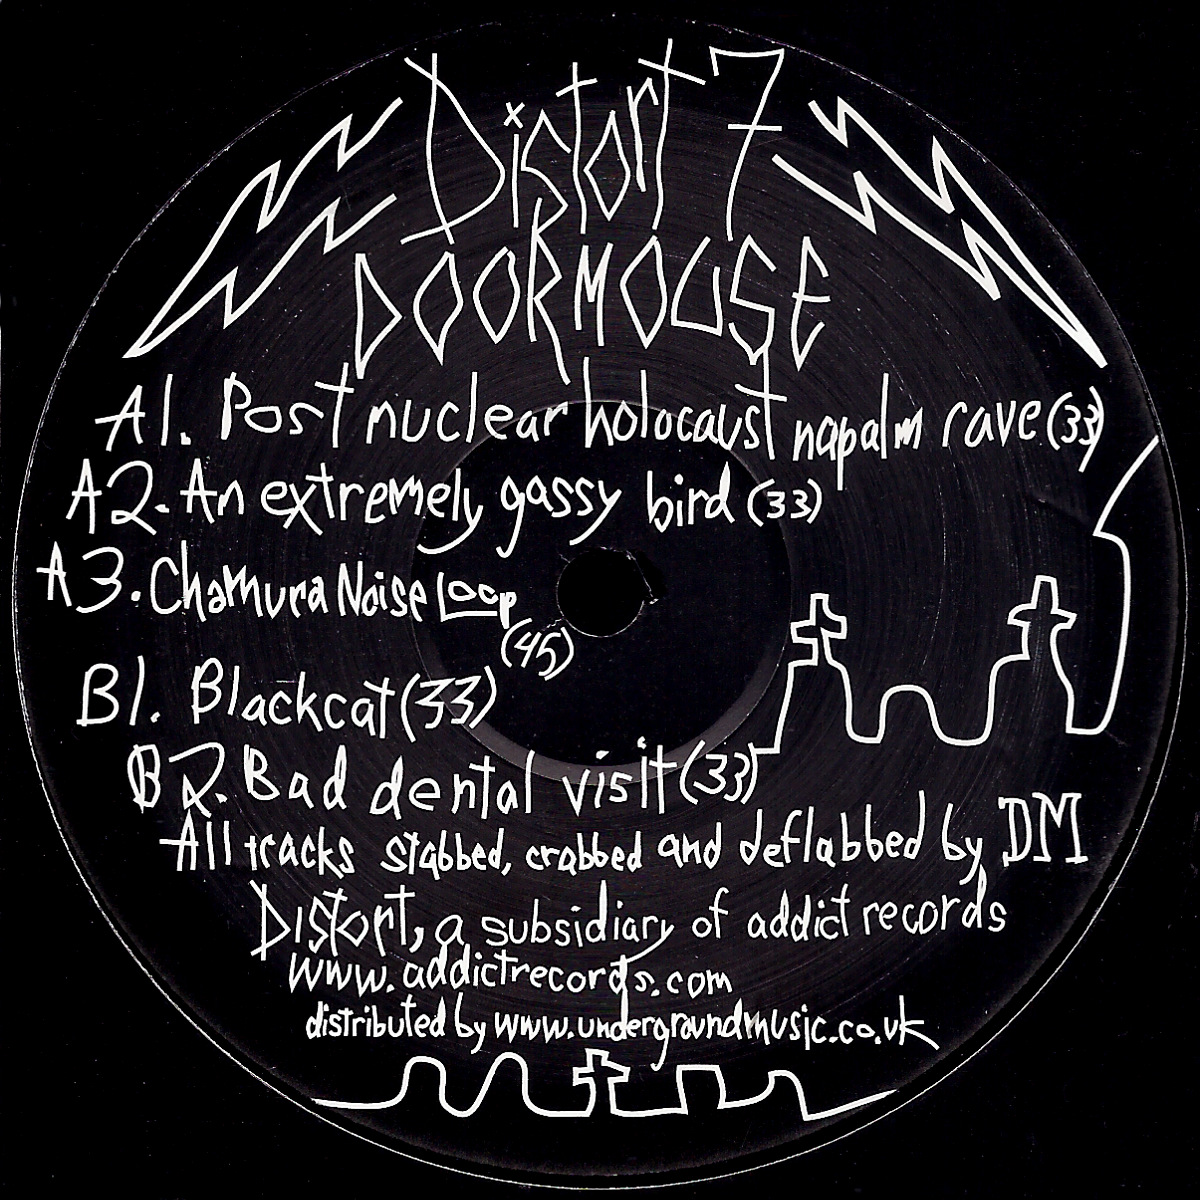 Distort 7
DOORMOUSE
A1. Post nuclear holocaust napalm rave (33)
A2. An extremely gassy bird (33)
A3. Chamura Noise Loop
(45)
B1. Blackcat (33)
B2. Bad dental visit (33)
All tracks stabbed, crabbed and deflabbed by DM
Distort, a subsidiary of addict records
www.addictrecords.com
distributed by www.undergroundmusic.co.uk